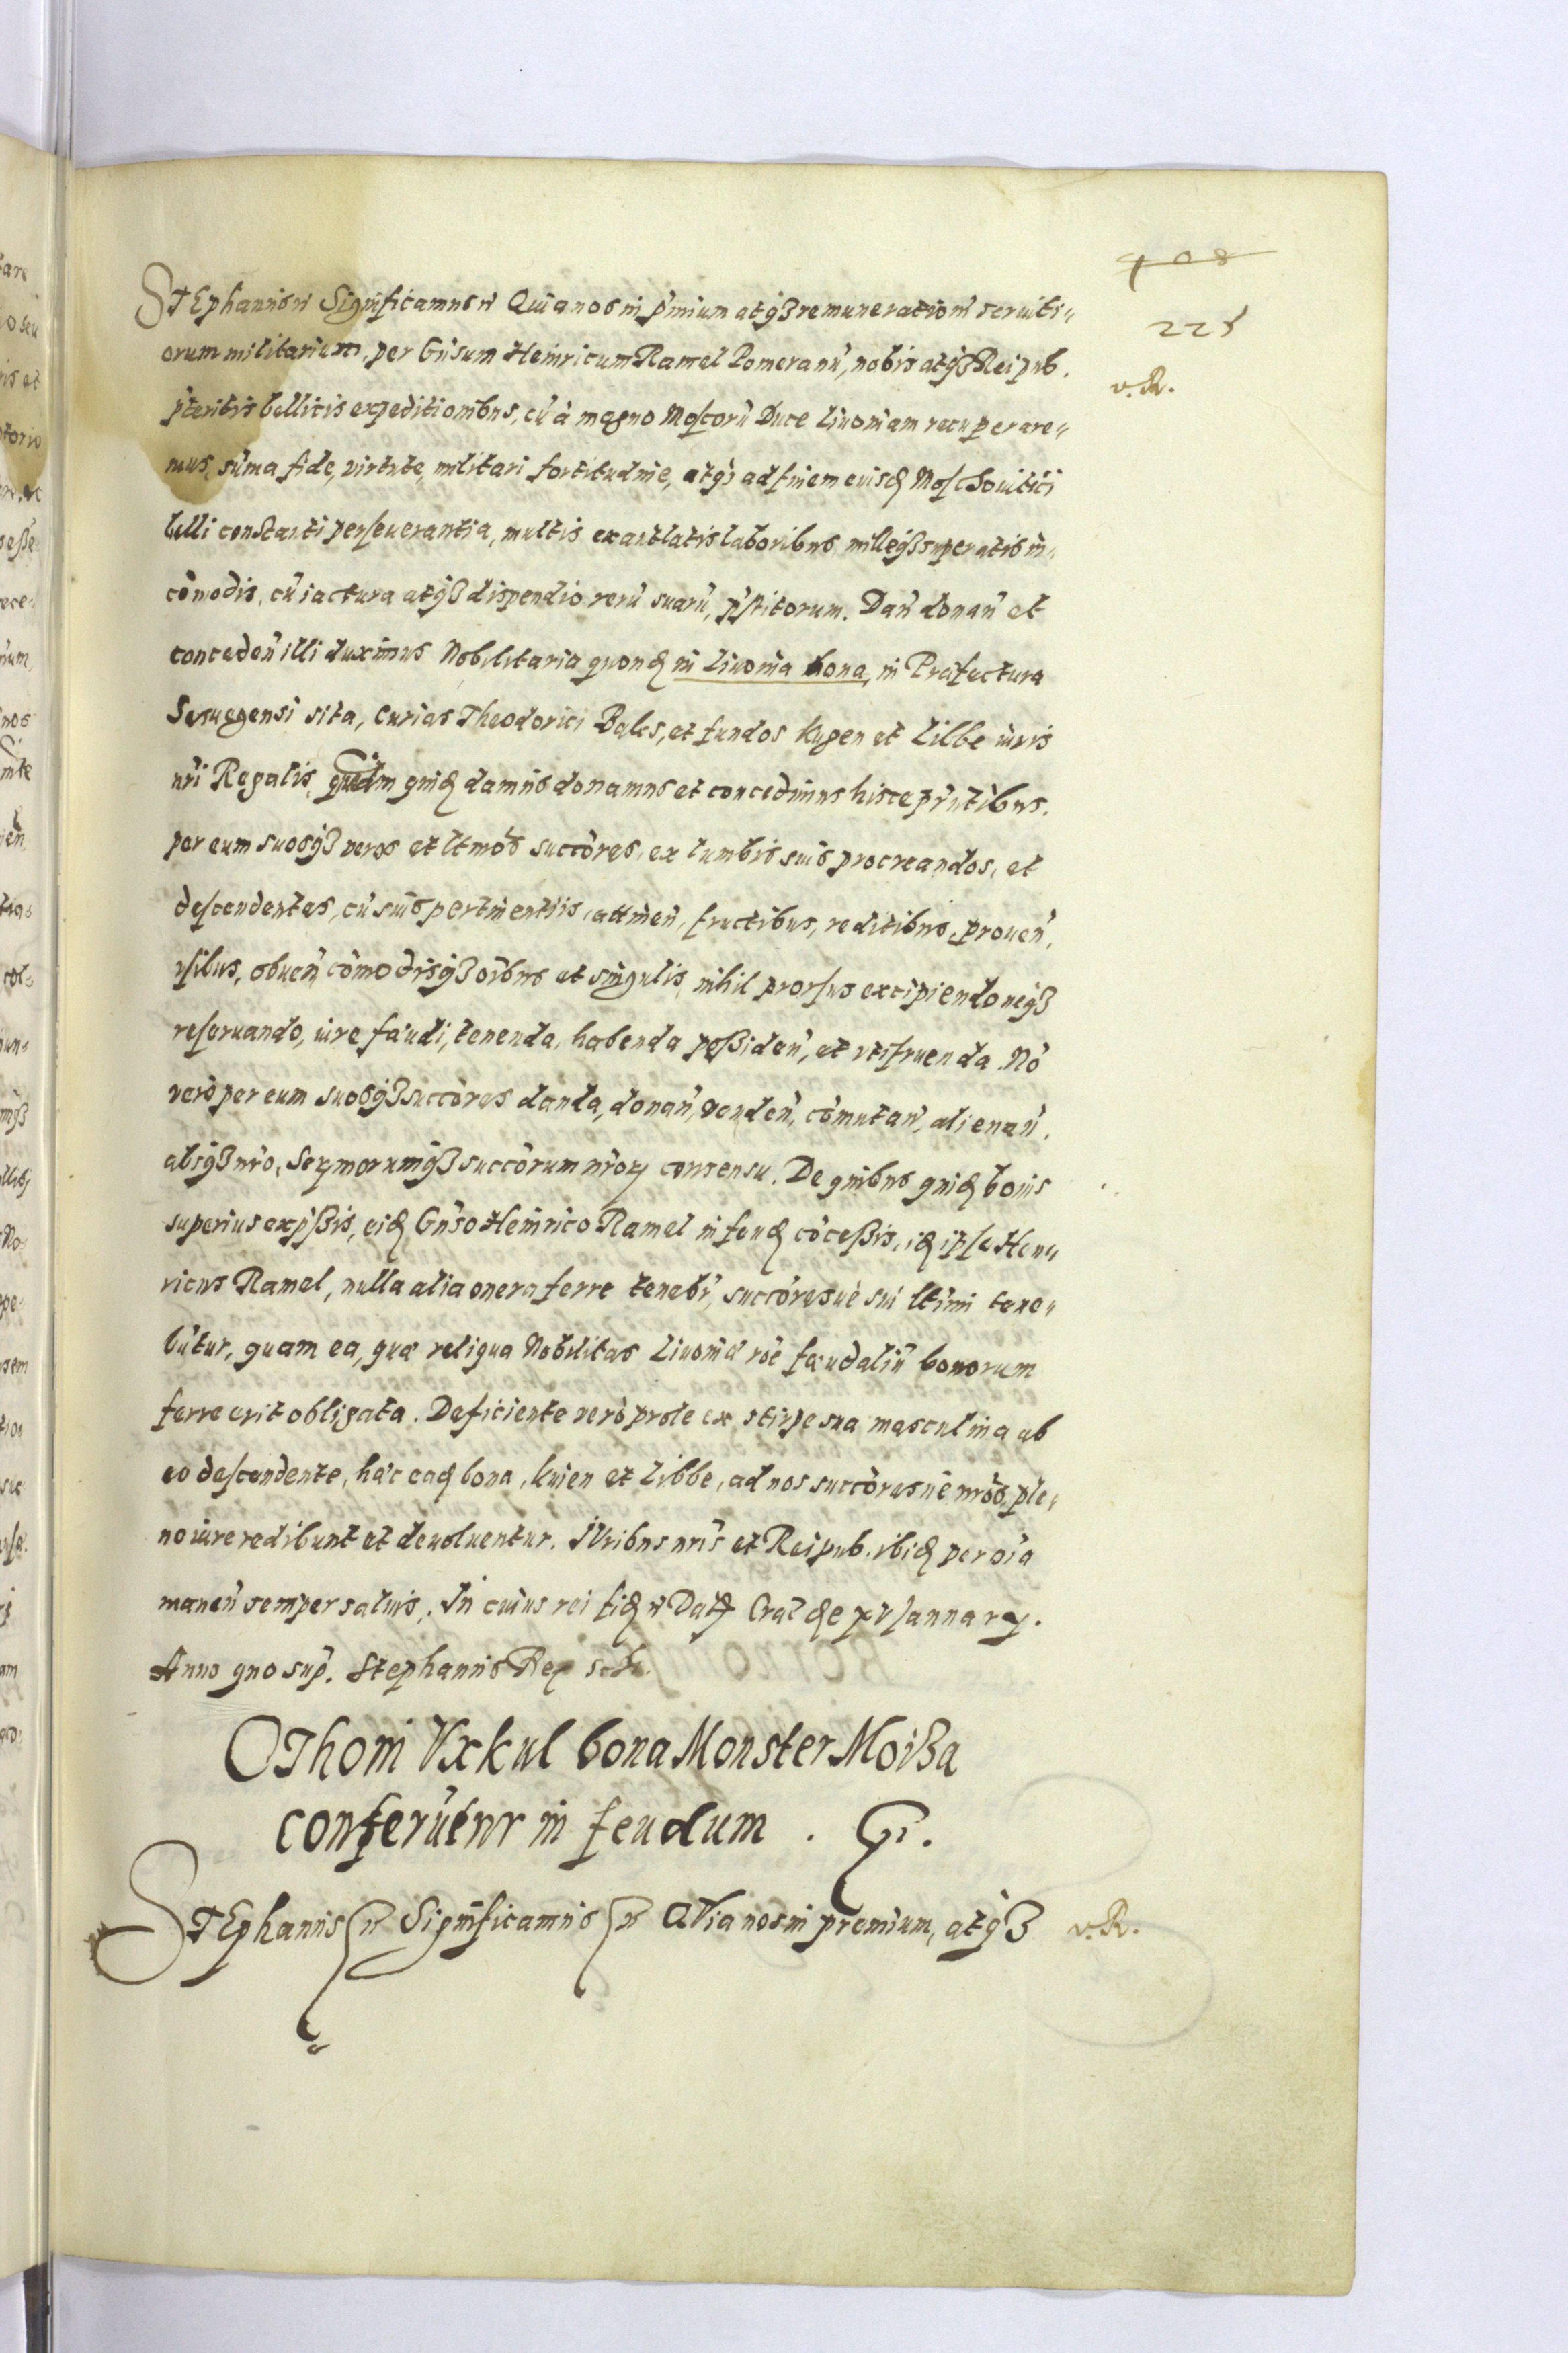 408
STEphanus etc Significamus etc Quia nos in p̃mium atq3 remunerationẽ seruiti„
225
orum militarium, per Gñsum Heinricum Ramel Pomeranũ, nobis atq3 Reipub.
v. R.
p̃teritis bellicis expeditionibus, cũ à magno Moscorũ Duce Liuoniam recuperare„
mus, sũma fide, virtute, militari fortitudine, atq3 ad finem eiusd Moschouitici
belli constanti perseuerantia, multis exantlatis laboribus milleq3 superatis in„
cõmodis, cũ iactura atq3 dispendio rerũ suarũ, p̃stitorum. Dañ donañ et
concedeñ illi duximus Nobilitaria quond in Liuonia bona, in Præfectura
Sesuegensi sita, Curias Theodorici Bales, et fundos Kugen et Lilbe iuris
nr̃i Regalis, quid damus donamus et concedimus hisce p̃ntibus.
per eum suosq3 veros et ltmos succores, ex lumbis suis procreandos, et
descendentes, cũ suis pertinentiis, attineñ, fructibus, reditibus, proueñ,
usibus, obueñ cõmodisq3 oĩbus et singulis, nihil prorsus excipiendo neq3
reseruando, iure fæudi, tenenda, habenda poßideñ, et vtifruenda. Nõ
verò per eum suosq3 succores danda, donañ, vendeñ, cõmutañ, alienañ.
absq3 nr̃o, Sermorumq3 succorum nr̃or consensu. De quibus quid bonis
superius exp̃ßis, eid Gñso Heinrico Ramel in feud cõceßis, id ipse Hen„
ricus Ramel, nulla alia onera ferre tenebr̃, succoresuè sui ltimi tene„
bũtur, quam ea, quæ reliqua Nobilitas Liuoniæ rõe fæudaliũ bonorum
ferre erit obligata. Deficiente verò prole ex stirpe sua masculina ab
eo descendente, hæc ead bona, Kuien et Libbe, ad nos succoresuè nr̃os, ple„
no iure redibunt et deuoluentur. Iuribus nr̃is et Reipub. ibid per oĩa
maneñ semper saluis. In cuius rei fid etc Datt Crac die xv Januarÿ.
Anno quo sup̃. Stephanus Rex sst.
OThoni Vxkul bona Monster Moiza
conferũtur in feudum. Gr.
STEphanus etc Significamus etc QVia nos in premium, atq3
v. R.